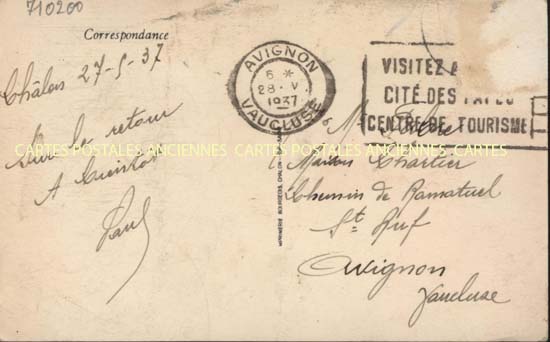 710200
Correspondance
Châlon 27-5-37
Sur le retour
A bientôt
Paul
AVIGNON
6 *
28 - V
1937
VAUCLUSE
VISITEZ A
CITÉ DES PAPES
CENTRE DE TOURISME
Maison Chartier
Chemin de Ramatuel
St Ruf
Avignon
Vaucluse
CARTES POSTALES ANCIENNES CARTES POSTALES ANCIENNES CARTES POSTALES ANCIENNES